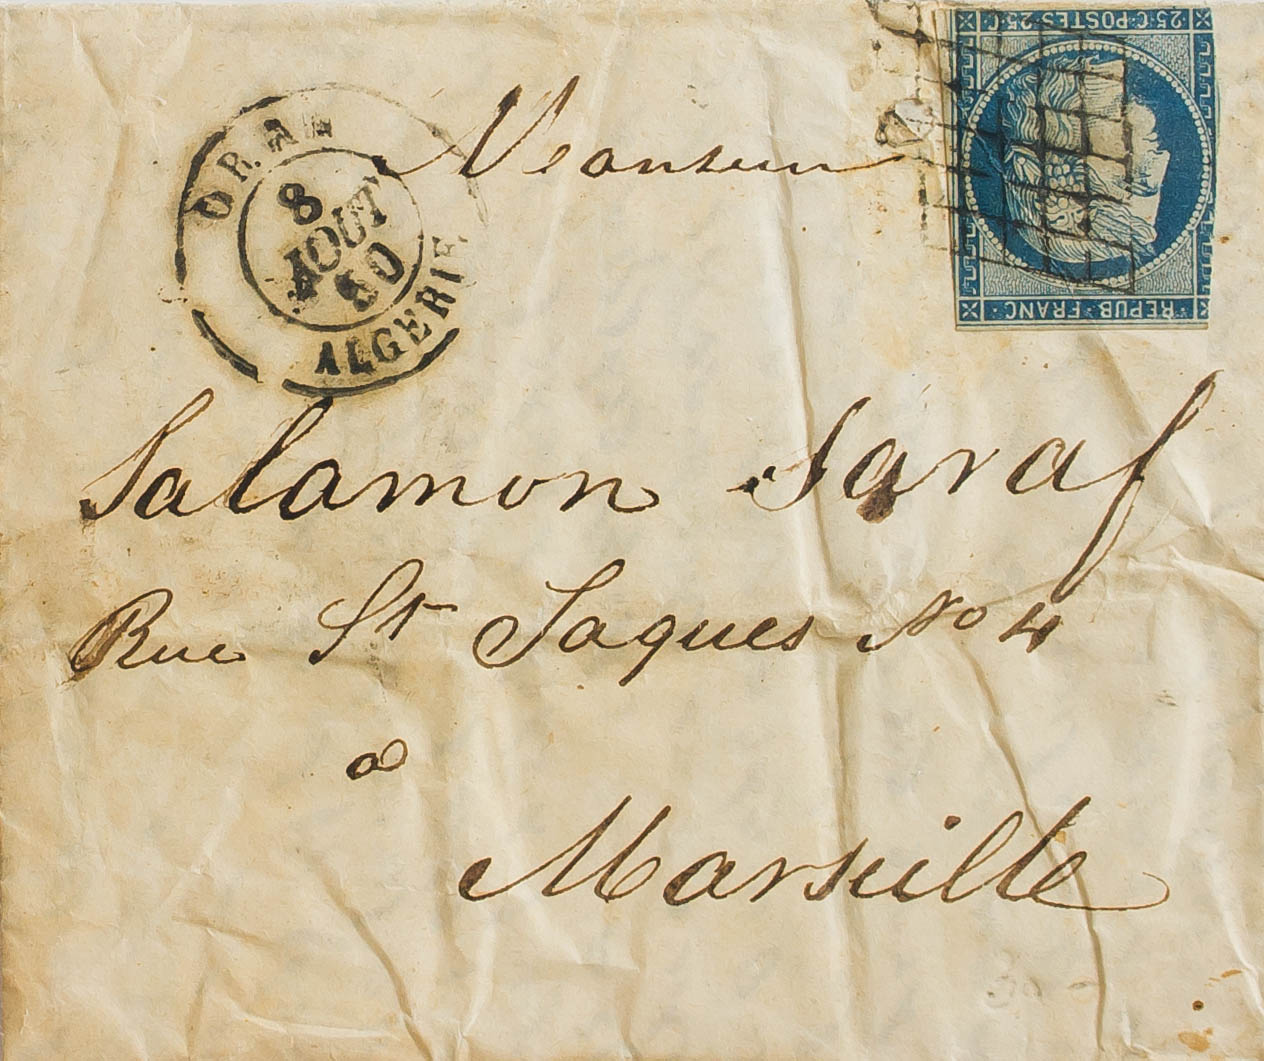 ORAN
8
AOUT
50
ALGERIE
25 C. POSTES. 25 C
REPUB. FRANC.
Monsieur
Salamon Saraf
Rue St Jaques No 4
a
Marseille